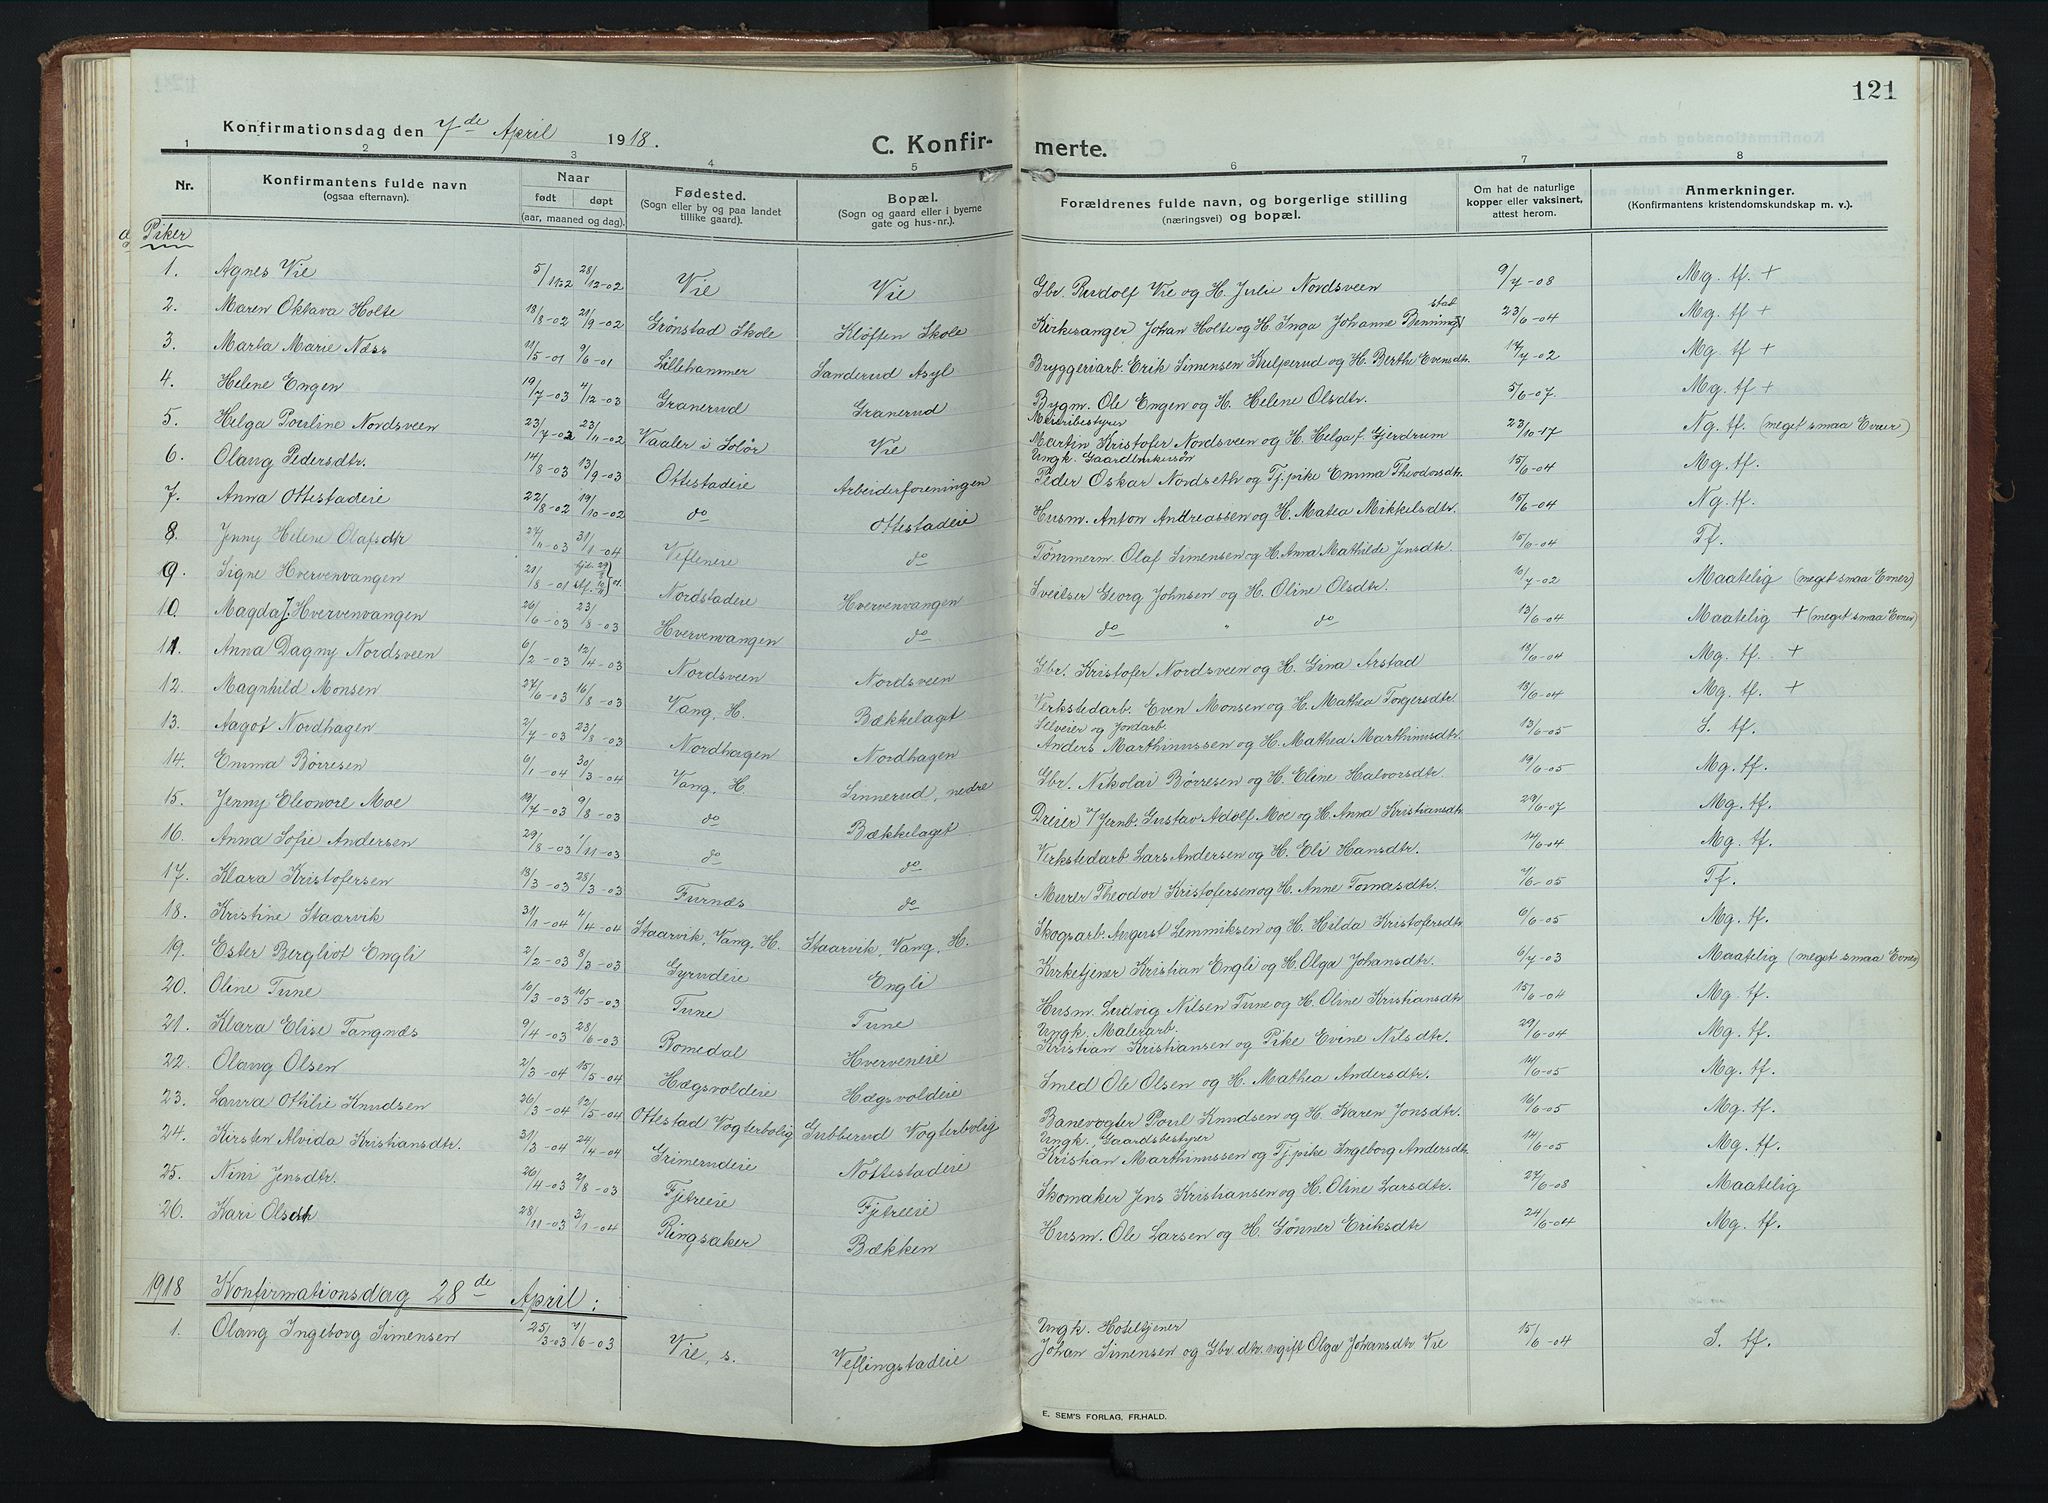 121
Konfirmationsdag den 7de April 1918.
C. Konfir- merte.
1 2 3 4 5 6 7 8
Nr. Konfirmantens fulde navn (ogsaa efternavn). Naar født døpt (aar, maaned og dag). Fødested. (Sogn eller by og paa landet tillike gaard). Bopæl. (Sogn og gaard eller i byerne gate og hus-nr.). Forældrenes fulde navn, og borgerlige stilling (næringsvei) og bopæl. Om hat de naturlige kopper eller vaksinert, attest herom. Anmerkninger. (Konfirmantens kristendomskundskap m. v.).
Piker
1. Agnes Vie 5/11 02 28/12-02 Vie Vie Gbr. Rudolf Vie og H. Julie Nordsveen 9/7-08 Mg. tf. +
2. Maren Oktava Holte 18/8-02 21/9-02 Grønstad Skole Kløften Skole Kirksanger Johan Holte og H. Inga Johanne Benningstad 23/6-04 Mg. tf +
3. Marta Marie Næss 11/5-01 9/6-01 Lillehammer Sanderud Asyl Bryggeriarb. Erik Simensen Kulperud og H. Berthe Evensdtr. 17/7-02 Mg. tf +
4. Helene Engen 19/7-03 4/12-03 Granerud Granerud Bygm. Ole Engen og H. Helene Olsdtr. 5/6-07. Mg. tf +
5. Helga Pouline Nordsveen 23/7-02 23/11-02 Vaaler i Solør Vie Meieribestyrer Martin Kristofer Nordsveen og H. Helga f. Gjerdrum 23/10-17 Ng. tf. (meget smaa Evner)
6. Olaug Pedersdtr. 14/8-03 13/9-03 Ottestadeie Arbeiderforeningen Ungk. Gaardbrukersøn Peder Oskar Nordseth og Tj.pike Emma Theodorsdtr. 15/6-04 Mg. tf.
7. Anna Ottestadeie 22/8-02 19/10-02 do Ottestadeie Husm. Anton Andreassen og H. Matea Mikkelsdtr. 15/6-04 Ng. tf.
8. Jenny Helene Olafsdtr 27/11-03 31/1-04 Vefleneie do Tømmerm. Olaf Simensen og H. Anna Mathilde Jensdtr. 15/6-04 Tf.
9. Signe Hvervenvangen 21/8-01 Nordstadeie Hvervenvangen Sveitser Georg Johnsen og H. Oline Olsdtr. 10/7-02 Maatelig (meget smaa Evner)
10. Magda J. Hvervenvangen 26/6-03 23/8-03 Hvervenvangen do do " do 13/6-04 Maatelig + (meget smaa Evner)
11. Anna Dagny Nordsveen 6/2-03 12/4-03 Nordsveen Nordsveen Gbr. Kristofer Nordsveen og H. Gina Arstad 13/6-04 Mg. tf. +
12. Magnhild Monsen 27/6-03 16/8-03 Vang, H. Bækkelaget Verkstedarb. Even Monsen og H. Mathea Torgersdtr. 13/6-04 Mg. tf. +
13. Aagot Nordhagen 2/7-03 23/8-03 Nordhagen Nordhagen Selveier og Jordarb. Anders Marthinussen og H. Mathea Marthinusdtr. 13/6-05 S. tf.
14. Emma Børresen 6/1-04 30/3-04 Vang, H. Sinnerud, nedre Gbr. Nikolai Børresen og H. Eline Halvorsdtr. 19/6-05 Mg. tf.
15. Jenny Eleonore Moe 19/7-03 9/8-03 do Bækkelaget Dreier v/ Jernb. Gustav Adolf Moe og H. Anna Kristiansdtr. 29/6-07 Mg. tf.
16. Anna Sofie Andersen 29/8-03 1/11-03 do do Verkstedarb Lars Andersen og H. Eli Hansdtr. 14/6-04 Mg. tf.
17. Klara Kristofersen 13/3-03 28/3-03 Furnæs do Murer Theodor Kristofersen og H. Anne Tomasdtr. 7/6-05 Tf.
18. Kristine Staarvik 31/1-04 4/4-04 Staarvik, Vang. H. Staarvik, Vang, H. Skogsarb. August Lemmiksen og H. Hilda Kristofersdtr 6/6-05 Mg. tf.
19. Ester Bergliot Engli 2/2-03 8/3-03 Gyrudeie Engli Kirketjener Kristian Engli og H. Olga Johansdtr. 6/7-03 Maatelig (meget smaa Evner)
20. Oline Tune 10/3-03 10/5-03 Tune Tune Husm. Ludvig Nilsen Tune og H. Oline Kristiansdtr 15/6-04 Mg. tf.
21. Klara Elise Tangnæs 9/4-03 28/6-03 Bomedal Hverveneie Ungk. Malerarb. Kristian Kristiansen og Pike Evine Nilsdtr. 29/6-04 Mg. tf.
22. Olaug Olsen 2/3-04 15/5-04 Hægsvoldeie Hægsvoldeie Smed Ole Olsen og H. Mathea Andersdtr. 14/6-05 Mg. tf.
23. Laura Ottilie Knudsen 26/3-04 12/5-04 Ottestad Vogterbolig Gubberud Vogterbolig Banevogter Poul Knudsen og H. Karen Jonsdtr. 16/6-05 Mg. tf.
24. Kirsten Alvida Kristiansdtr. 31/3-04 24/4-04 Grimerudeie Nottestadeie Ungk. Gaardsbestyrer Kristian Marthinussen og Tj.pike Ingeborg Andersdtr 14/6-05 Mg. tf.
25. Nini Jensdtr. 26/4-03 2/8-03 Fjetreeie Fjetreeie Skomaker Jens Kristiansen og H. Oline Larsdtr. 27/6-08 Maatelig
26. Kari Olsdtr 28/11-03 3/1-04 Ringsaker Bækken Husm. Ole Larsen og H. Gønner Eriksdtr 24/6-04 Mg. tf.
1918 Konfirmationsdag 28de April:
1. Olaug Ingeborg Simensen 25/3-03 7/6-03 Vie, s. Veflingstadeie Ungk. Hoteltjener Johan Simensen og Gbr. dtr. ugift Olga Johansdtr Vie 15/6-04 S. tf.
E. SEM'S FORLAG, FR.HALD.